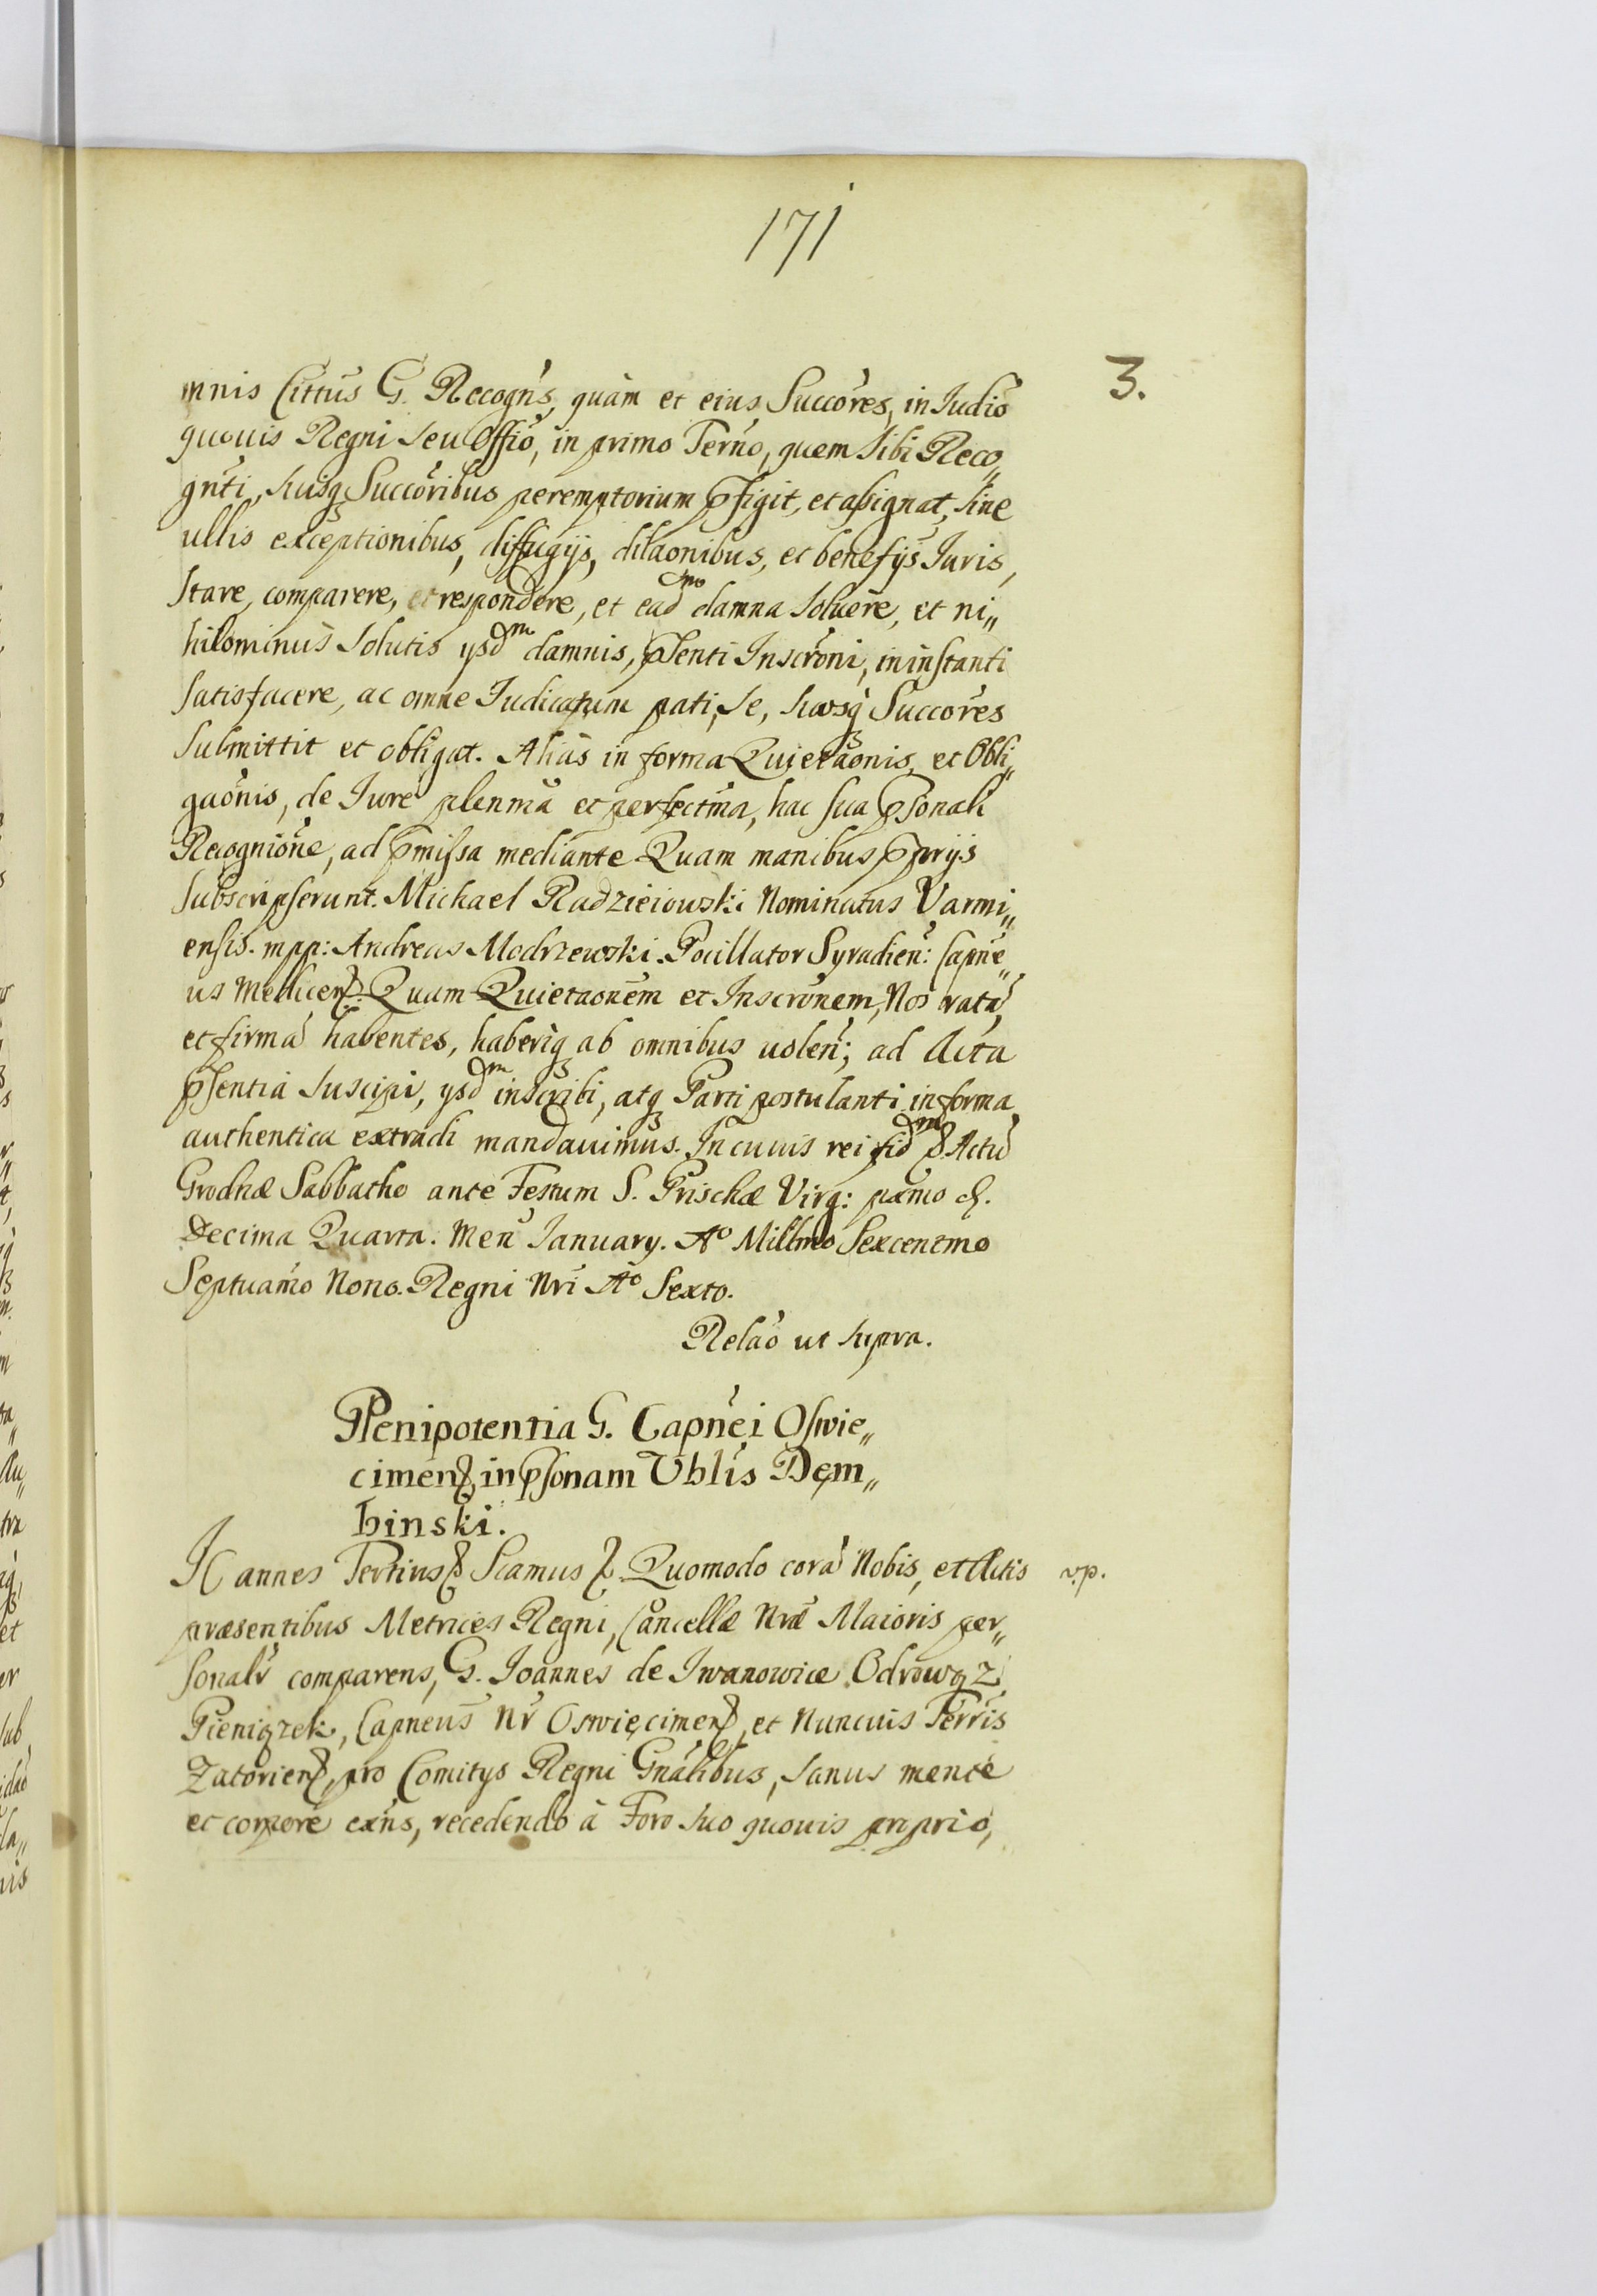 171
3.
mnis Cittus G. Recogns, quàm et eius Succores, in Iudio
quouis Regni seu Offio, in primo Terno, quem sibi Reco„
gnti, suisq Succoribus peremptorium pfigit, et assignat, sine
ullis exceptionibus, diffugijs, dilaonibus, et benefijs Iuris,
stare, comparere, et respondere, et ead damna soluere, et ni„
hilominus solutis ysdm damnis, psenti Inscroni, in instanti
satisfacere, ac omne Iudicatum pati, se, suosq Succores
submittit et obligat. Aliàs in forma Quietaonis, et Obli„
gaonis, de Iure plenma et perfectma, hac sua psonali
Recognione, ad pmissa mediante. Quam manibus pprijs
subscripserunt. Michael Radzieiowski Nominatus Varmi„
ensis. mpp: Andreas Modrzewski. Pocillator Syradien: Capne„
us Medicen. Quam Quietaonem et Inscronem, Nos rata,
et firma habentes, haberiq ab omnibus uolen; ad Acta
psentia suscipi, ysdm inscribi, atq Parti postulanti in forma
authentica extradi mandauimus. In cuius rei fidm &. Actu
Grodnæ Sabbatho ante Festum S. Priscæ Virg: pxmo &.
Decima Quarta. Men January. Ao Millmo Sexcentmo
Septuamo Nono. Regni Nri Ao Sexto.
Relao ut supra.
Plenipotentia G. Capnei Oswie„
cimen, in psonam Vblis Dęm„
binski.
Ioannes Tertius & Scamus &. Quomodo cora Nobis, et Actis
v.p.
præsentibus Metrices Regni, Cancellæ Nræ Maioris per„
sonalr comparens, G. Ioannes de Iwanowice Odrowąz
Pieniązek, Capneus Nr Oswięcimen, et Nuncuis Terris
Zatorien, pro Comitys Regni Gnalibus, sanus mente
et corpore exns, recedendo à Foro suo quouis proprio,